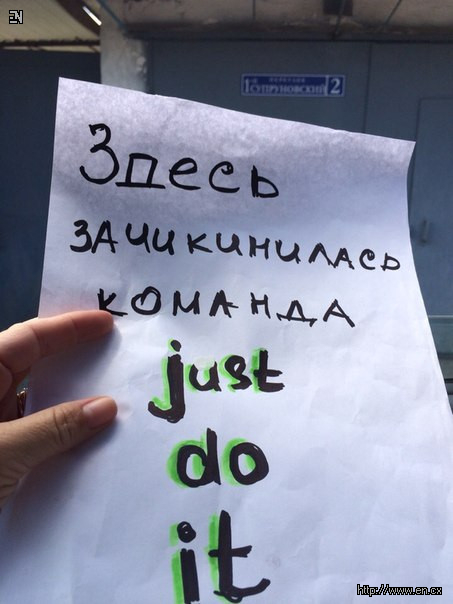 EN
переулок
1-й СУПРУНОВСКИЙ 2
Здесь
зачикинилась
команда
just
do
it
http://www.en.cx